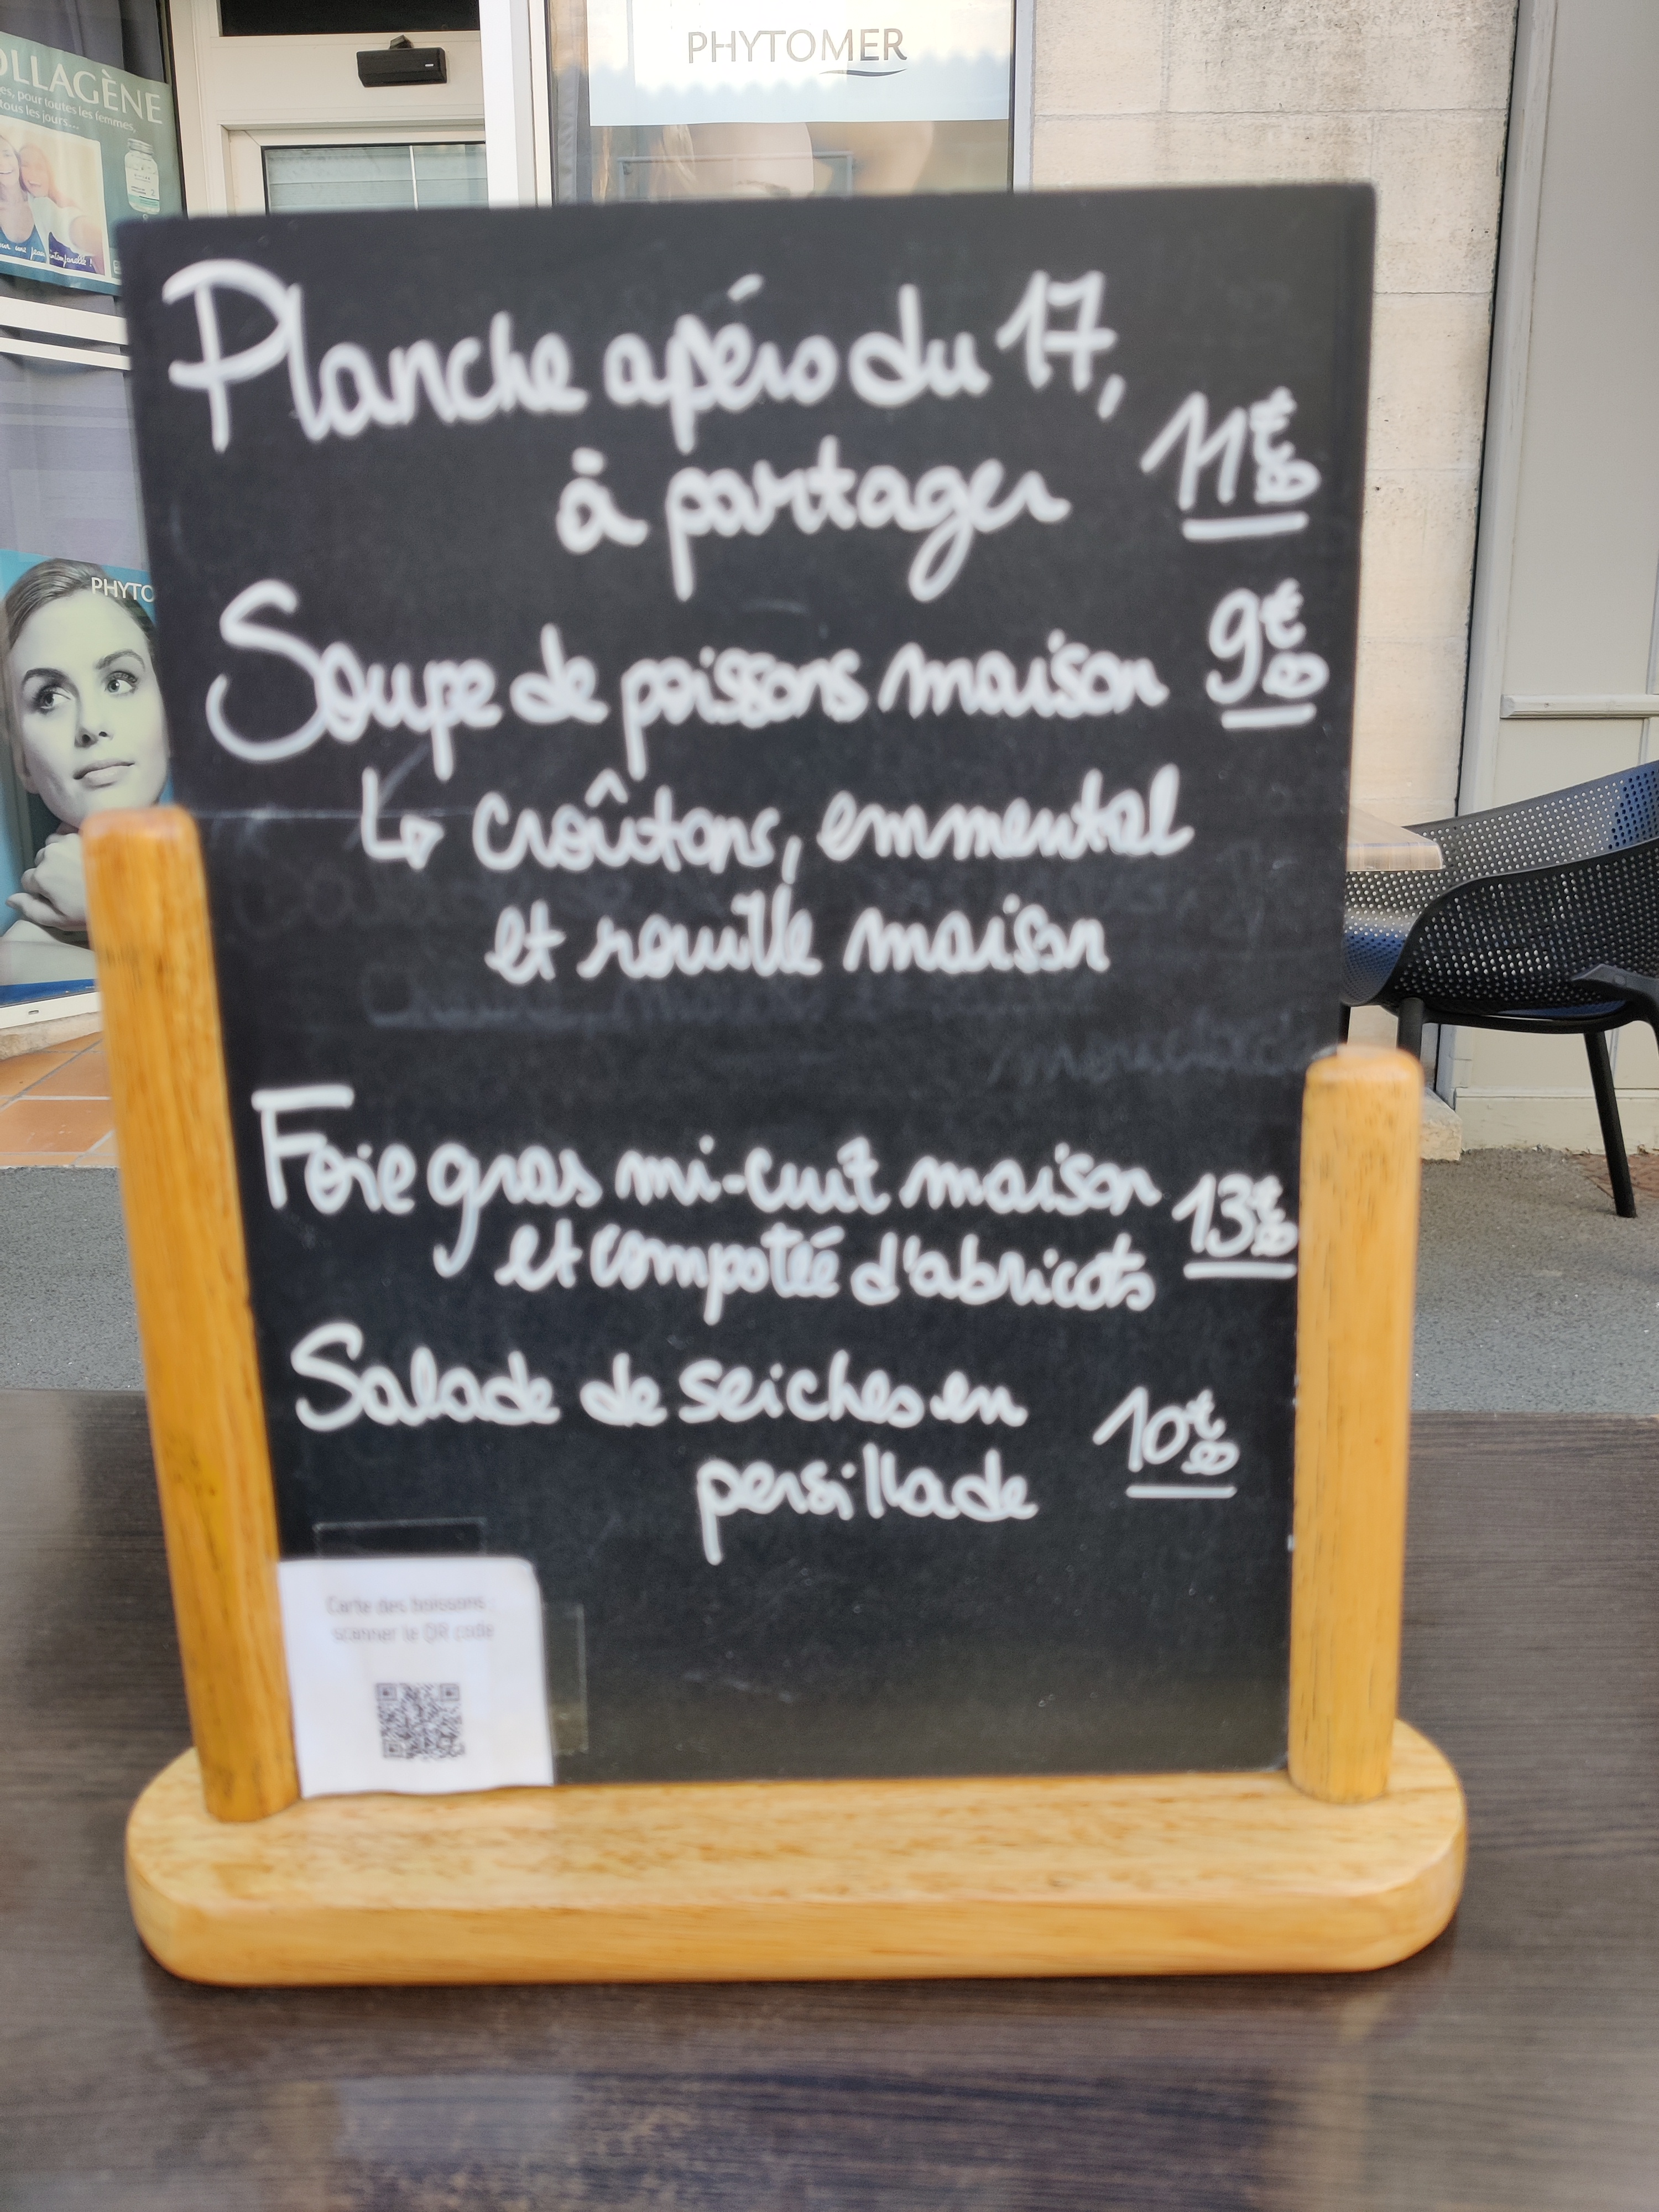 OLLAGÈNE
es, pour toutes les femmes,
tous les jours...
PHYTOMER
PHYTO
Planche apéro du 17,
à partager 11€00
Soupe de poissons maison 9€00
↳ croûtons, emmental
et rouille maison
Foie gras mi-cuit maison 13€00
et compotée d'abricots
Salade de seiches en
persillade 10€00
Carte des boissons :
scanner le QR code